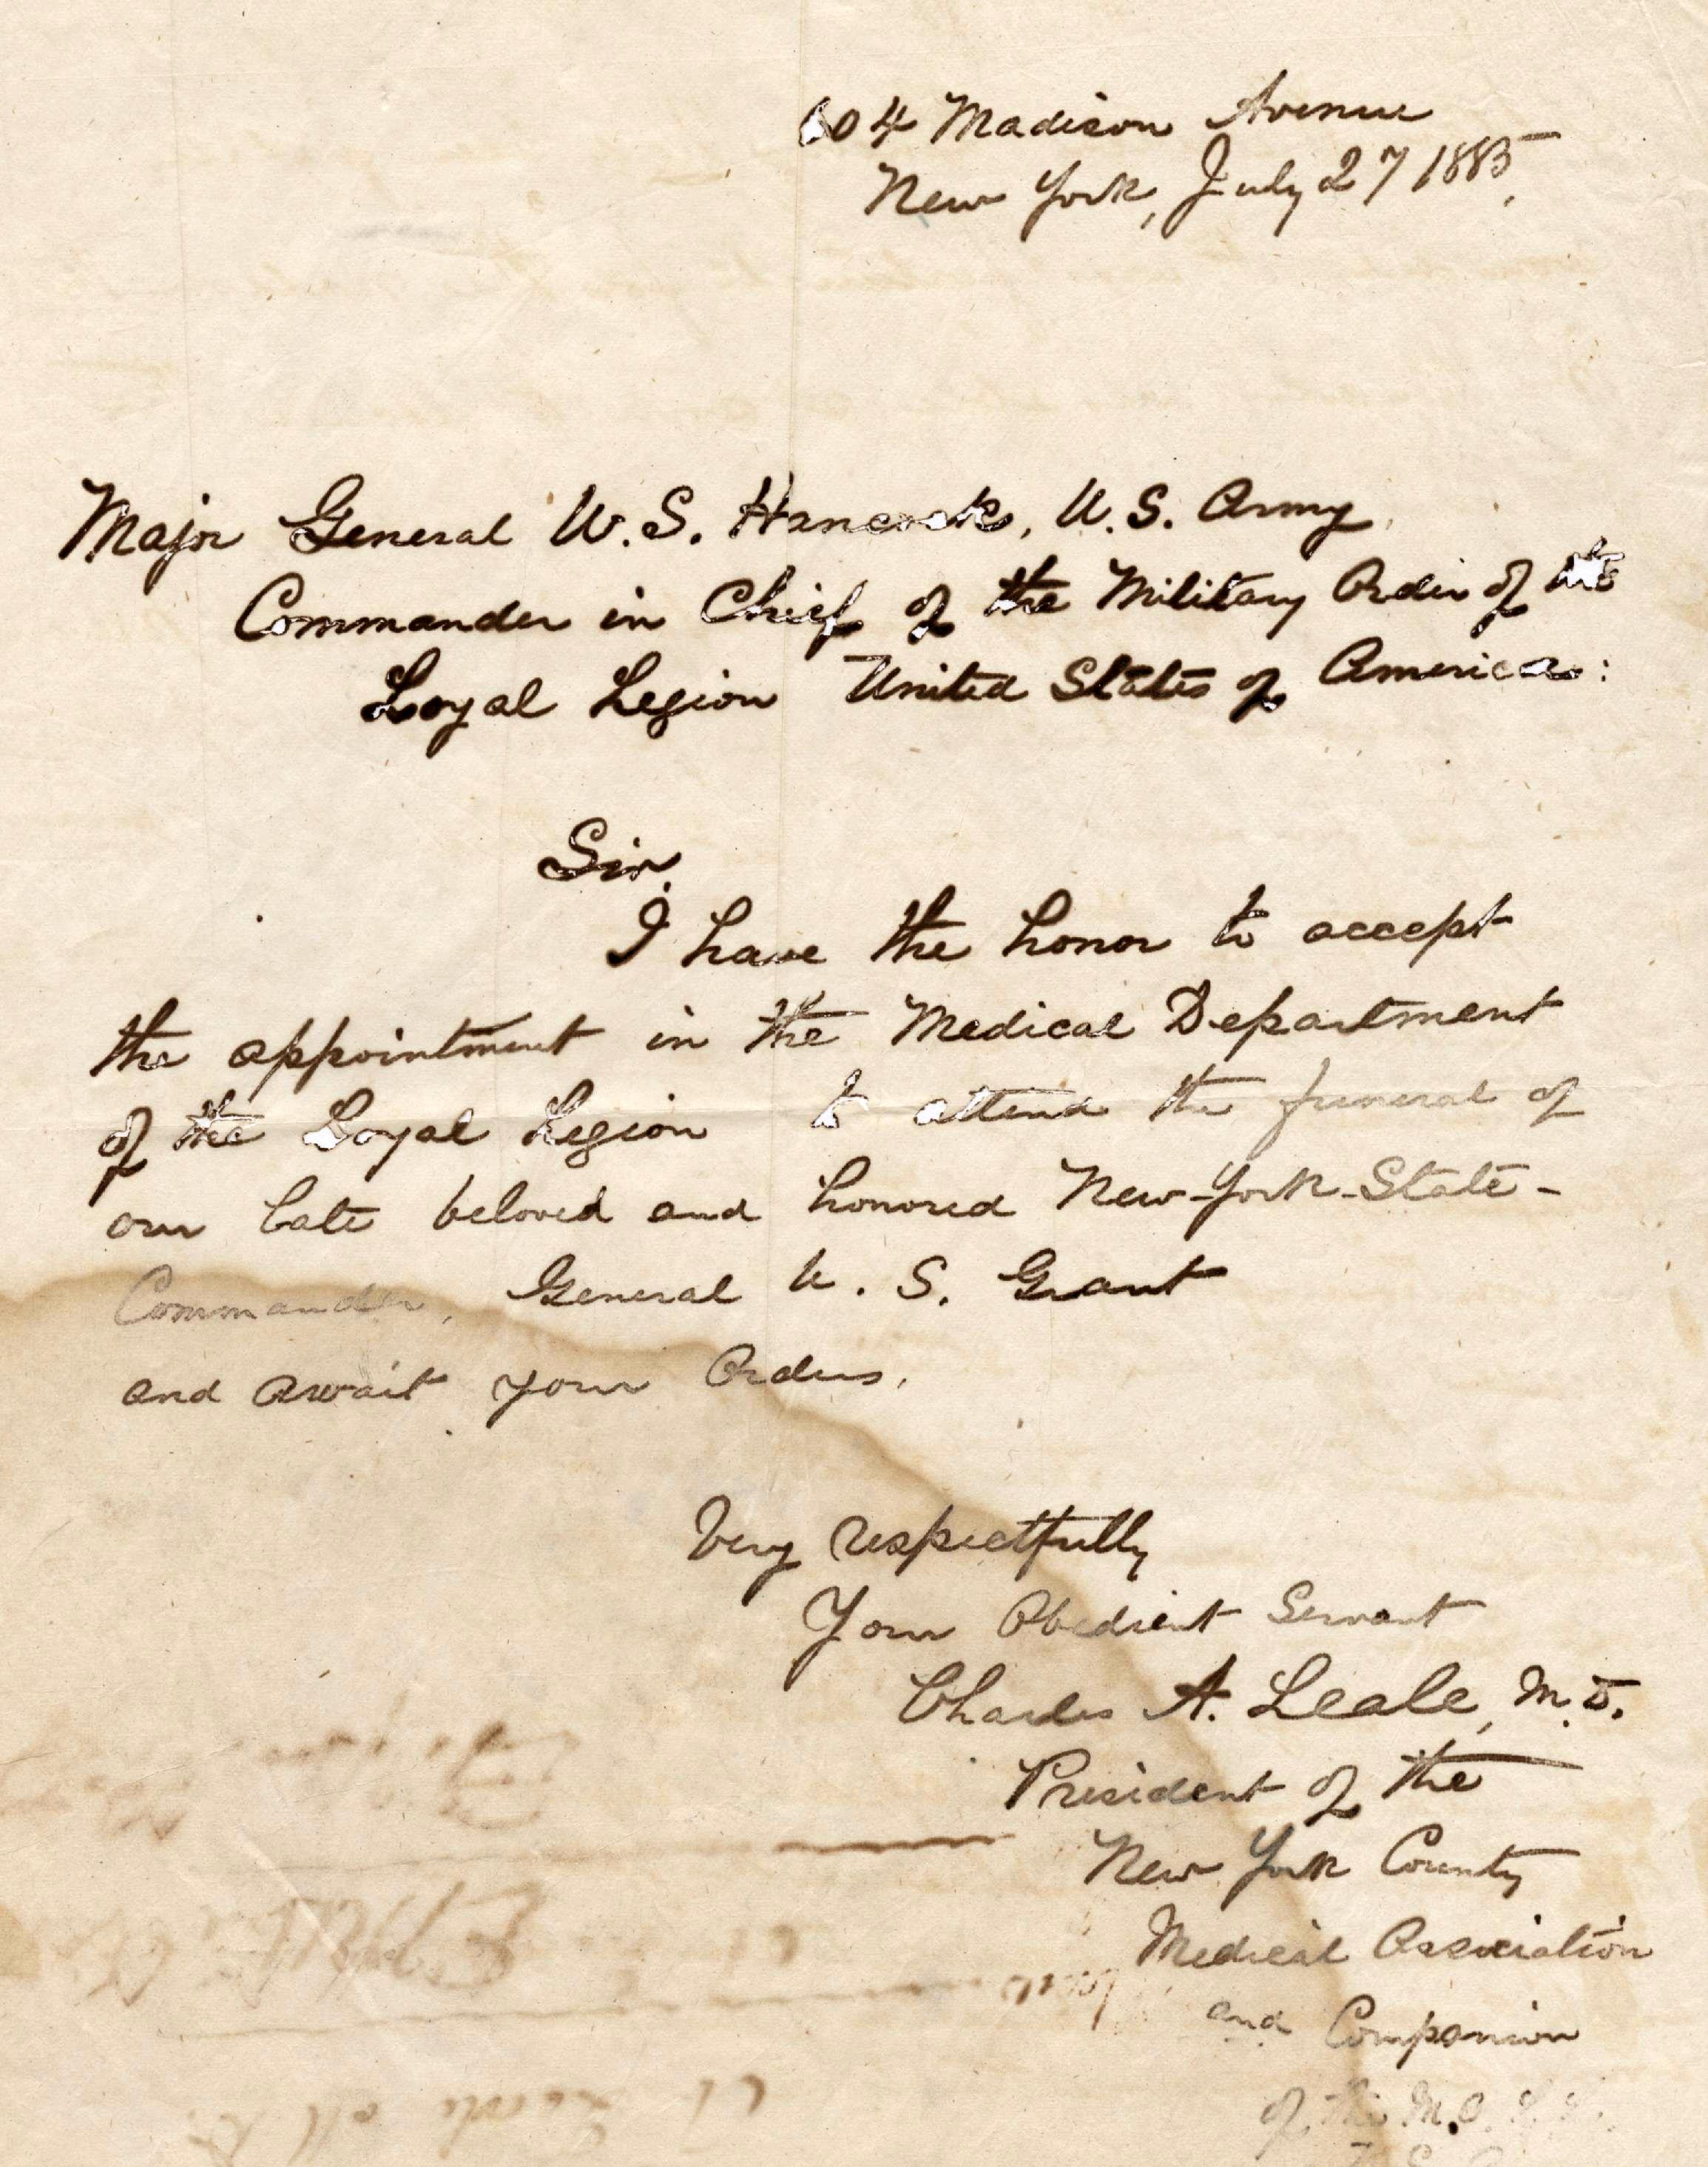 604 Madison Avenue
New York, July 27 1885,
Major General W. S. Hancock, U. S. Army,
Commander in Chief of the Military Order of the
Loyal Legion United States of America:
Sir,
I have the honor to accept
the appointment in the Medical Department
of the Loyal Legion to attend the funeral of
our late beloved and honored New-York-State-
Commander, General U. S. Grant
and await your Orders.
Very respectfully
Your Obedient Servant
Charles A. Leale, M.D.
President of the
New York County
Medical Association
and Companion
of the M.O.L.L.